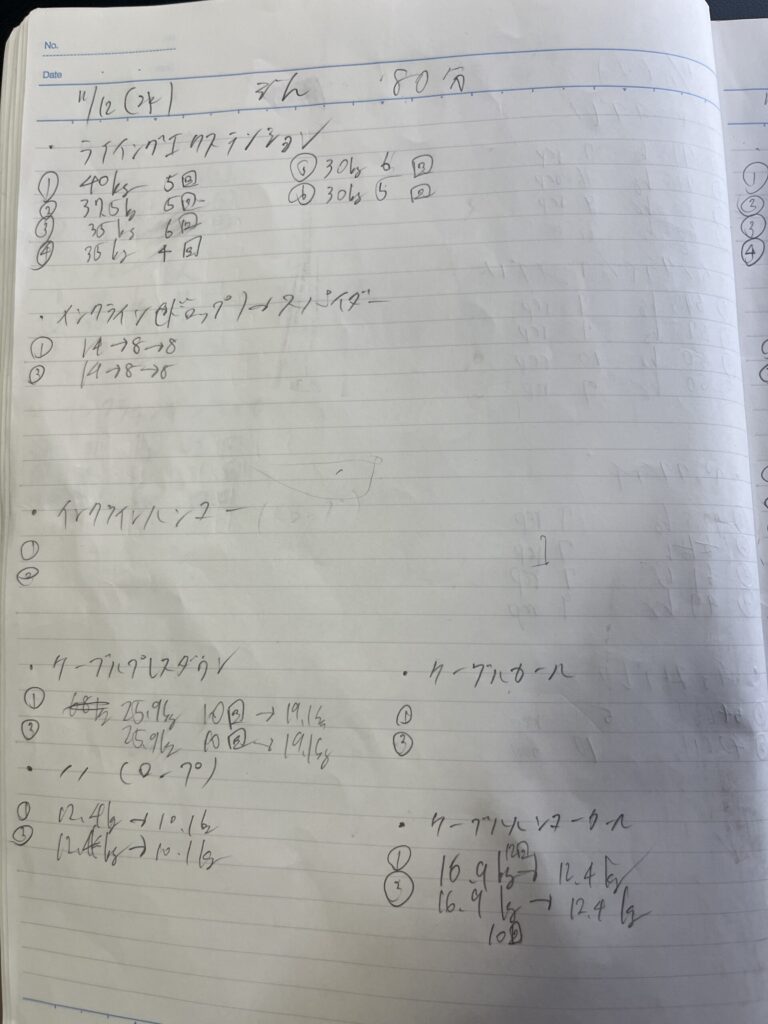 No.
Date
11/12(水) 80分
・ライイングエクステンション
① 40kg 5回
② 37.5k 5回
③ 35kg 6回
④ 35kg 4回
⑤ 30kg 6回
⑥ 30kg 5回
・インクライン(ドロップ)→スパイダー
① 14→8→8
② 14→8→8
・インクラインハンマー
①
②
・ケーブルプレスダウン
① 25.9kg 10回→19.1kg
② 25.9kg 10回→19.1kg
・〃(ロープ)
① 12.4kg→10.1kg
② 12.4kg→10.1kg
・ケーブルカール
①
②
・ケーブルハンマーカール
① 16.9kg 12回→12.4kg
② 16.9kg→12.4kg
10回
①
②
③
④